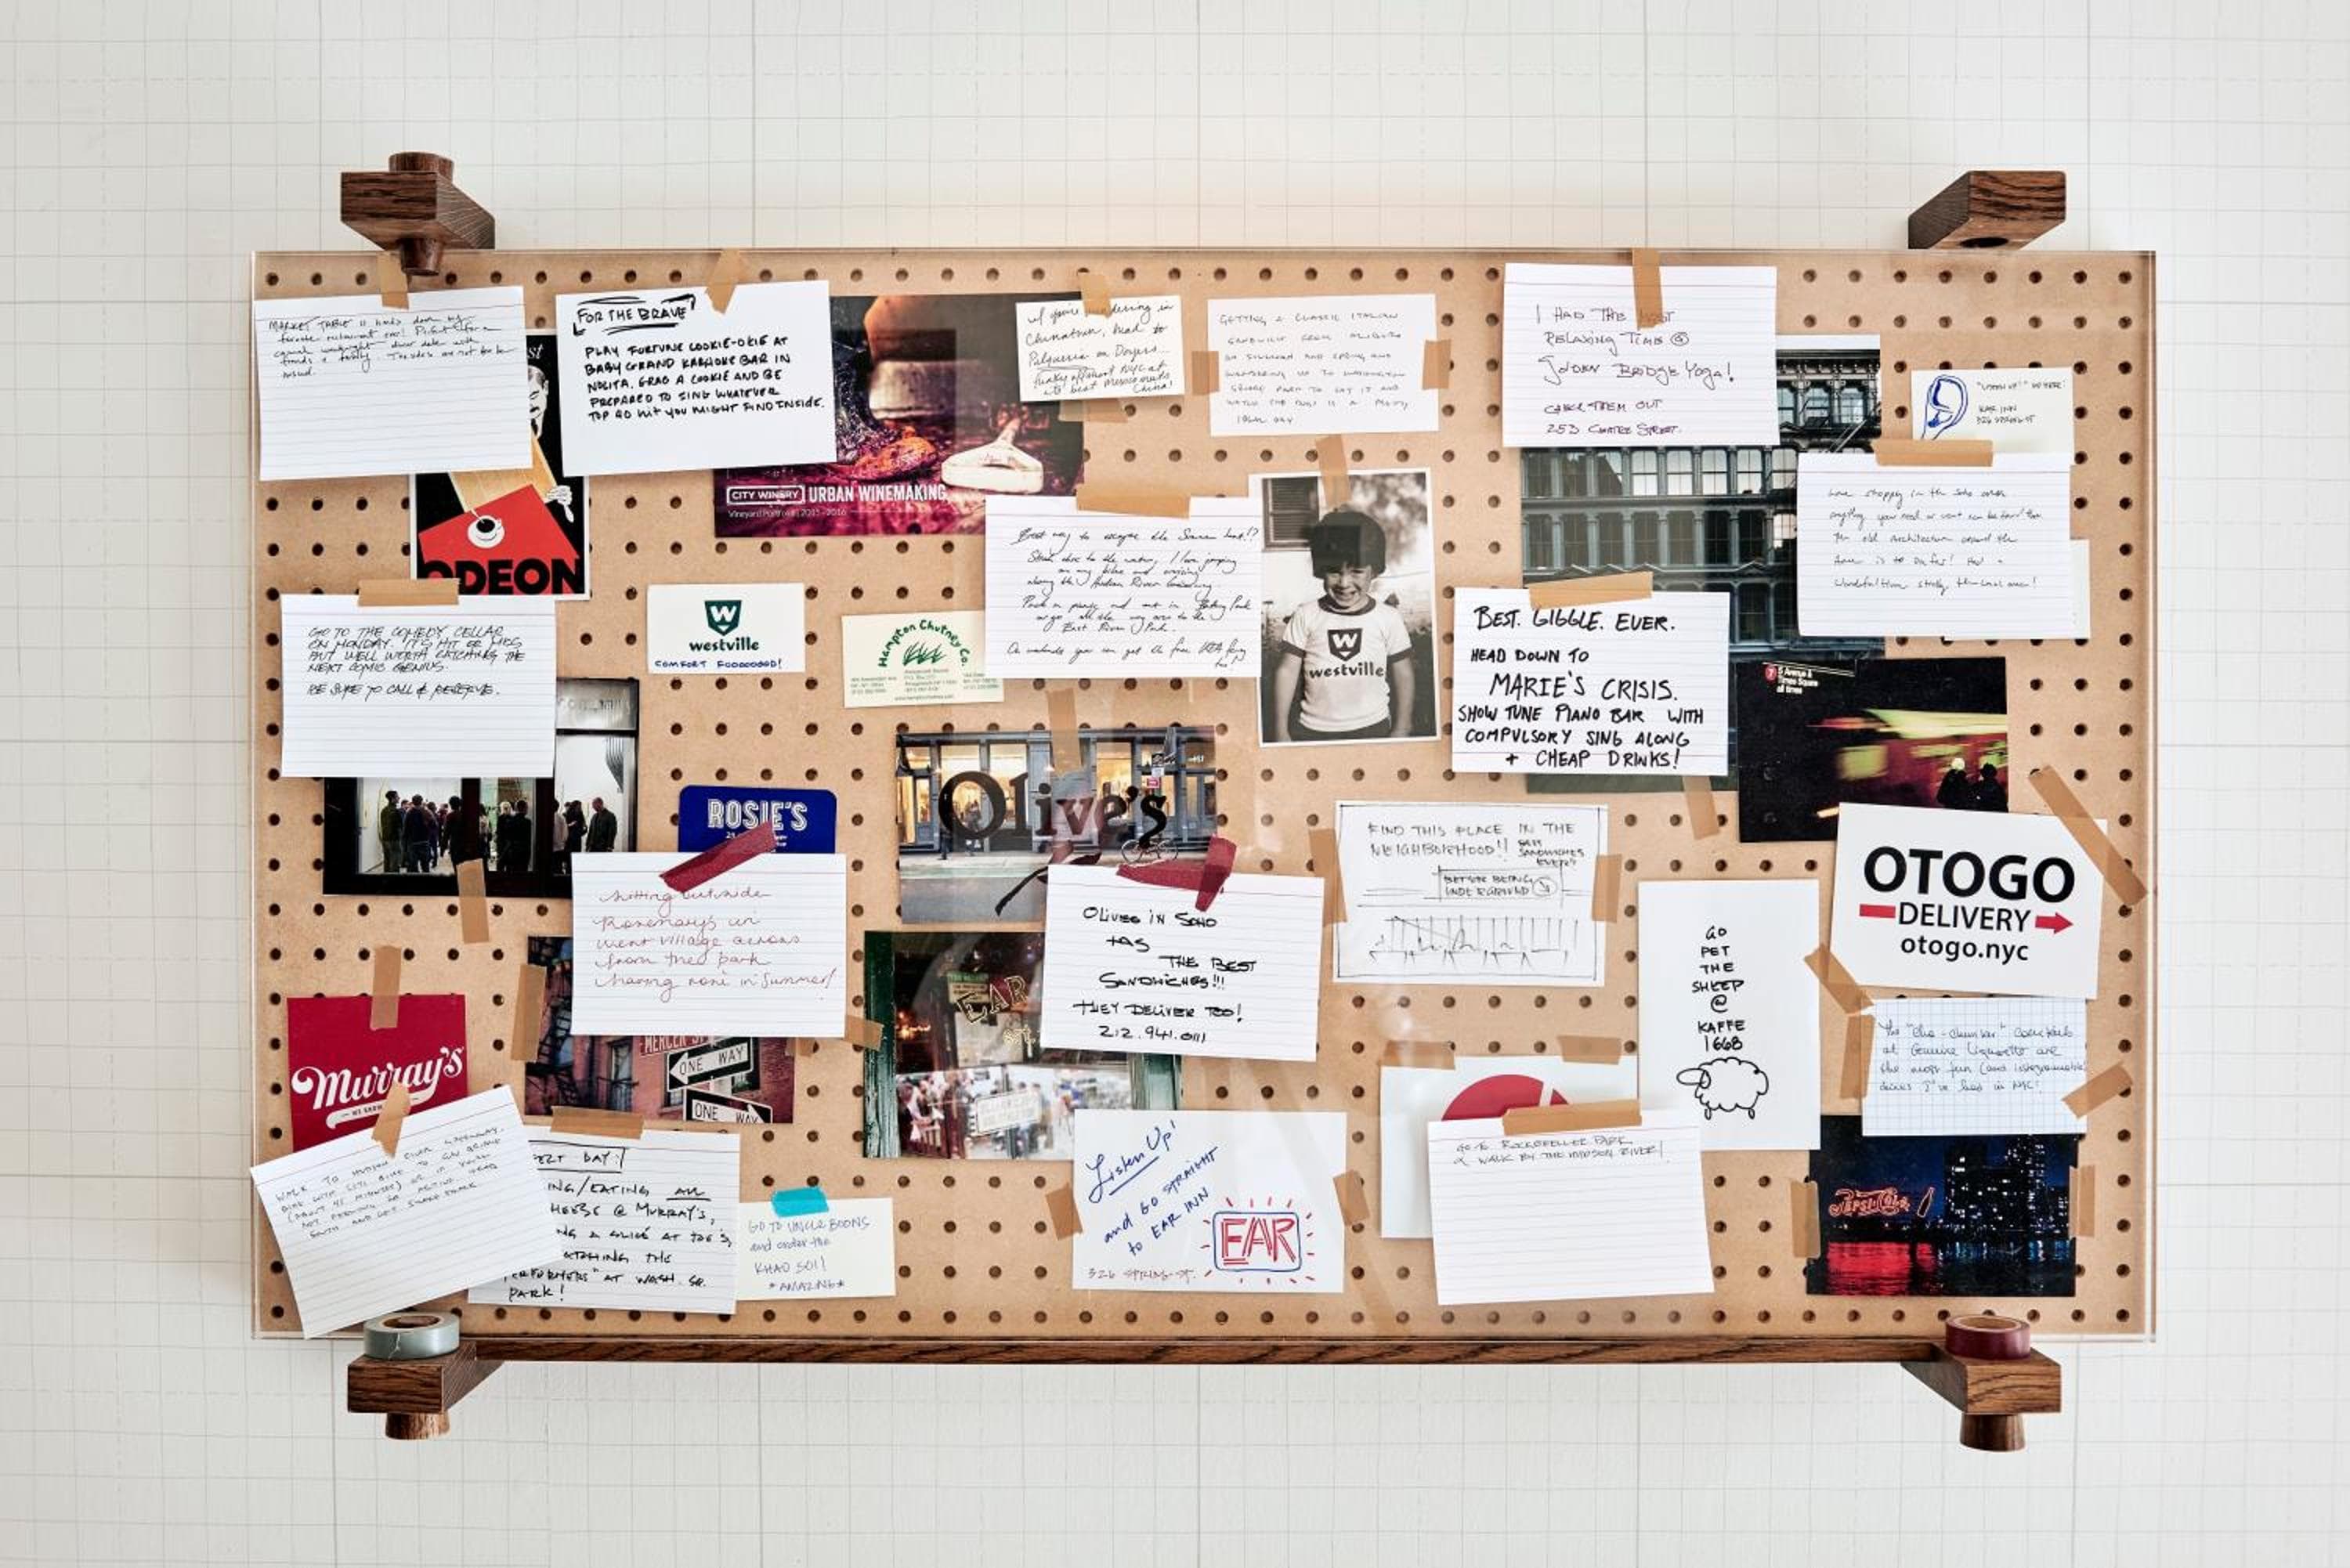 MARKET TABLE is hands down my
favorite restaurant ever! Perfect for a
casual weeknight dinner date with
friends & family. The sides are not to be
missed.
FOR THE BRAVE
PLAY FORTUNE COOKIE-OKIE AT
BABY GRAND KARAOKE BAR IN
NOLITA. GRAB A COOKIE AND BE
PREPARED TO SING WHATEVER
TOP 40 HIT YOU MIGHT FIND INSIDE.
CITY WINERY URBAN WINEMAKING
Vineyard Portfolio | 2015-2016
If you're wandering in
Chinatown, head to
Pulqueria on Doyers...
funky offshoot NYC at
its best Mexican meets
China!
GETTING A CLASSIC ITALIAN
SANDWICH FROM
ON SULLIVAN AND SPRING AND
WANDERING UP TO WASHINGTON
SQUARE PARK TO EAT IT AND
I HAD THE MOST
RELAXING TIME @
GOLDEN BRIDGE YOGA!
CHECK THEM OUT
253 CENTRE STREET.
"LISTEN UP!"
EAR INN
326 SPRING ST
Love shopping in the Soho area
anything you need or want can be found
the old architecture around the
ODEON
Best way to escape the Summer heat!?
Straight to the water, I love jumping
on my bike and cruising
along the Hudson River
Pack a picnic and eat in Battery Park
or go all the way over to the
East River Park.
On weekends you can get the free IKEA ferry
too!
W
westville
COMFORT FOOOOOOOD!
Hampton Chutney Co.
W
westville
BEST. GIGGLE. EVER.
HEAD DOWN TO
MARIE'S CRISIS.
SHOW TUNE PIANO BAR WITH
COMPULSORY SING ALONG
+ CHEAP DRINKS!
GO TO THE COMEDY CELLAR
ON MONDAY. IT'S HIT OR MISS
BUT WELL WORTH CATCHING THE
NEXT COMIC GENIUS.
BE SURE TO CALL & RESERVE.
7 5 Avenue &
Times Square
all times
ROSIE'S
Olive's
FIND THIS PLACE IN THE
NEIGHBORHOOD!! BEST
SANDWICHES
EVER!!
BETTER BEING
UNDERGROUND
OTOGO
DELIVERY
otogo.nyc
sitting outside
Rosemary's in
west village across
from the park
having rosé in Summer!
OLIVES IN SOHO
HAS
THE BEST
SANDWICHES!!!
THEY DELIVER TOO!
212.941.0111
EAR
GO
PET
THE
SHEEP
@
KAFFE
1668
The "cha-chunker" cocktails
at Genuine Liquorette are
the most fun (and
drinks I've had in NYC!
Murray's
MERCER ST
ONE WAY
ONE WAY
WALK TO HUDSON RIVER GREENWAY.
BIKE WITH CITI BIKE TO GW BRIDGE
(ABOUT 45 MINUTES)
SOUTH AND GET SHAKE SHACK.
DAY:
ING/EATING ALL
HEESE @ MURRAY'S,
NG A SLICE AT JOE'S,
ATCHING THE
PERFORMERS" AT WASH. SQ.
PARK!
GO TO UNCLE BOONS
and order the
KHAO SOI!
*AMAZING*
Listen Up!
and GO STRAIGHT
to EAR INN
EAR
326 SPRING ST.
GO TO ROCKEFELLER PARK
& WALK BY THE HUDSON RIVER!
PEPSI-COLA